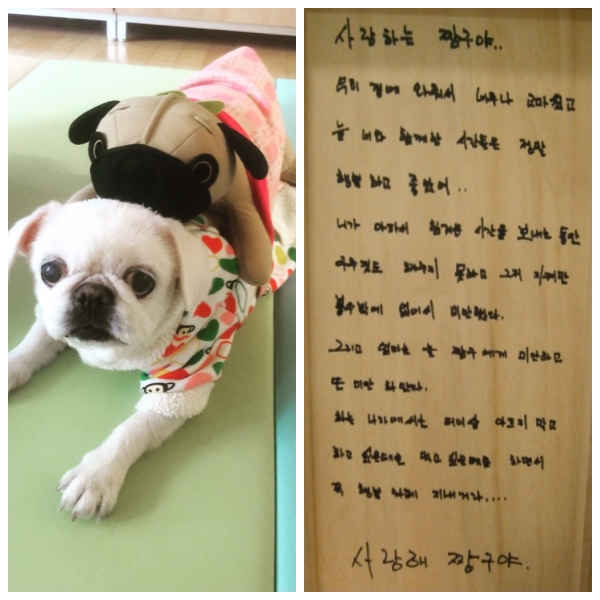 사랑하는 짱구야..
우리 곁에 와줘서 너무나 고마웠고
늘 너와 함께한 시간들은 정말
행복하고 좋았어..
니가 아파서 힘겨운 시간을 보내는 동안
아무것도 해주지 못하고 그저 지켜만
볼수밖에 없어서 미안했다.
그리고 엄마는 늘 짱구에게 미안하고
또 미안 하단다.
하늘 나라에서는 더이상 아프지 말고
하고 싶은대로 먹고 싶은대로 하면서
꼭 행복 하게 지내거라....
사랑해 짱구야.